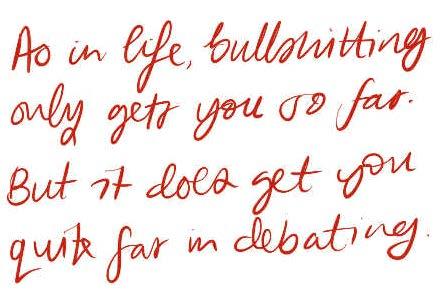 As in life, bullshitting
only gets you so far.
But it does get you
quite far in debating.